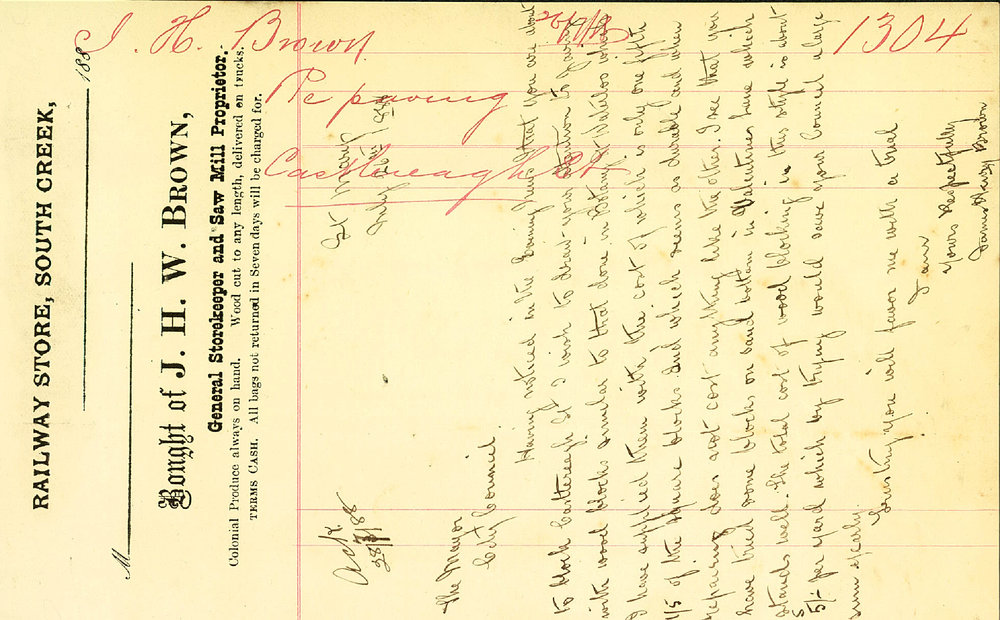 J. H. Brown 26/7/88 1304
Re paving
Castlereagh St
RAILWAY STORE, SOUTH CREEK,
188
M
Bought of J. H. W. BROWN,
General Storekeeper and Saw Mill Proprietor.
Colonial Produce always on hand. Wood cut to any length, delivered on trucks.
TERMS CASH. All bags not returned in Seven days will be charged for.
St Marys
July 26th 1888
Ack
28/7/88
The Mayor
City Council
Having noticed in the Evening News that you are about
to block Castlereagh St I wish to draw your attention to paving
with wood blocks similar to that done in Botany St Waterloo which
I have supplied them with the cost of which is only one fifth
1/5 of the square blocks. And which seems as durable and when
repairing does not cost anything like the other. I see that you
have tried some blocks on sand bottom in Valentines lane which
stands well. The total cost of wood blocking in this style is about
5/- per yard which by trying would save your Council a large
sum yearly.
Trusting you will favor me with a trial
I am
Yours Respectfully
James Henry Brown